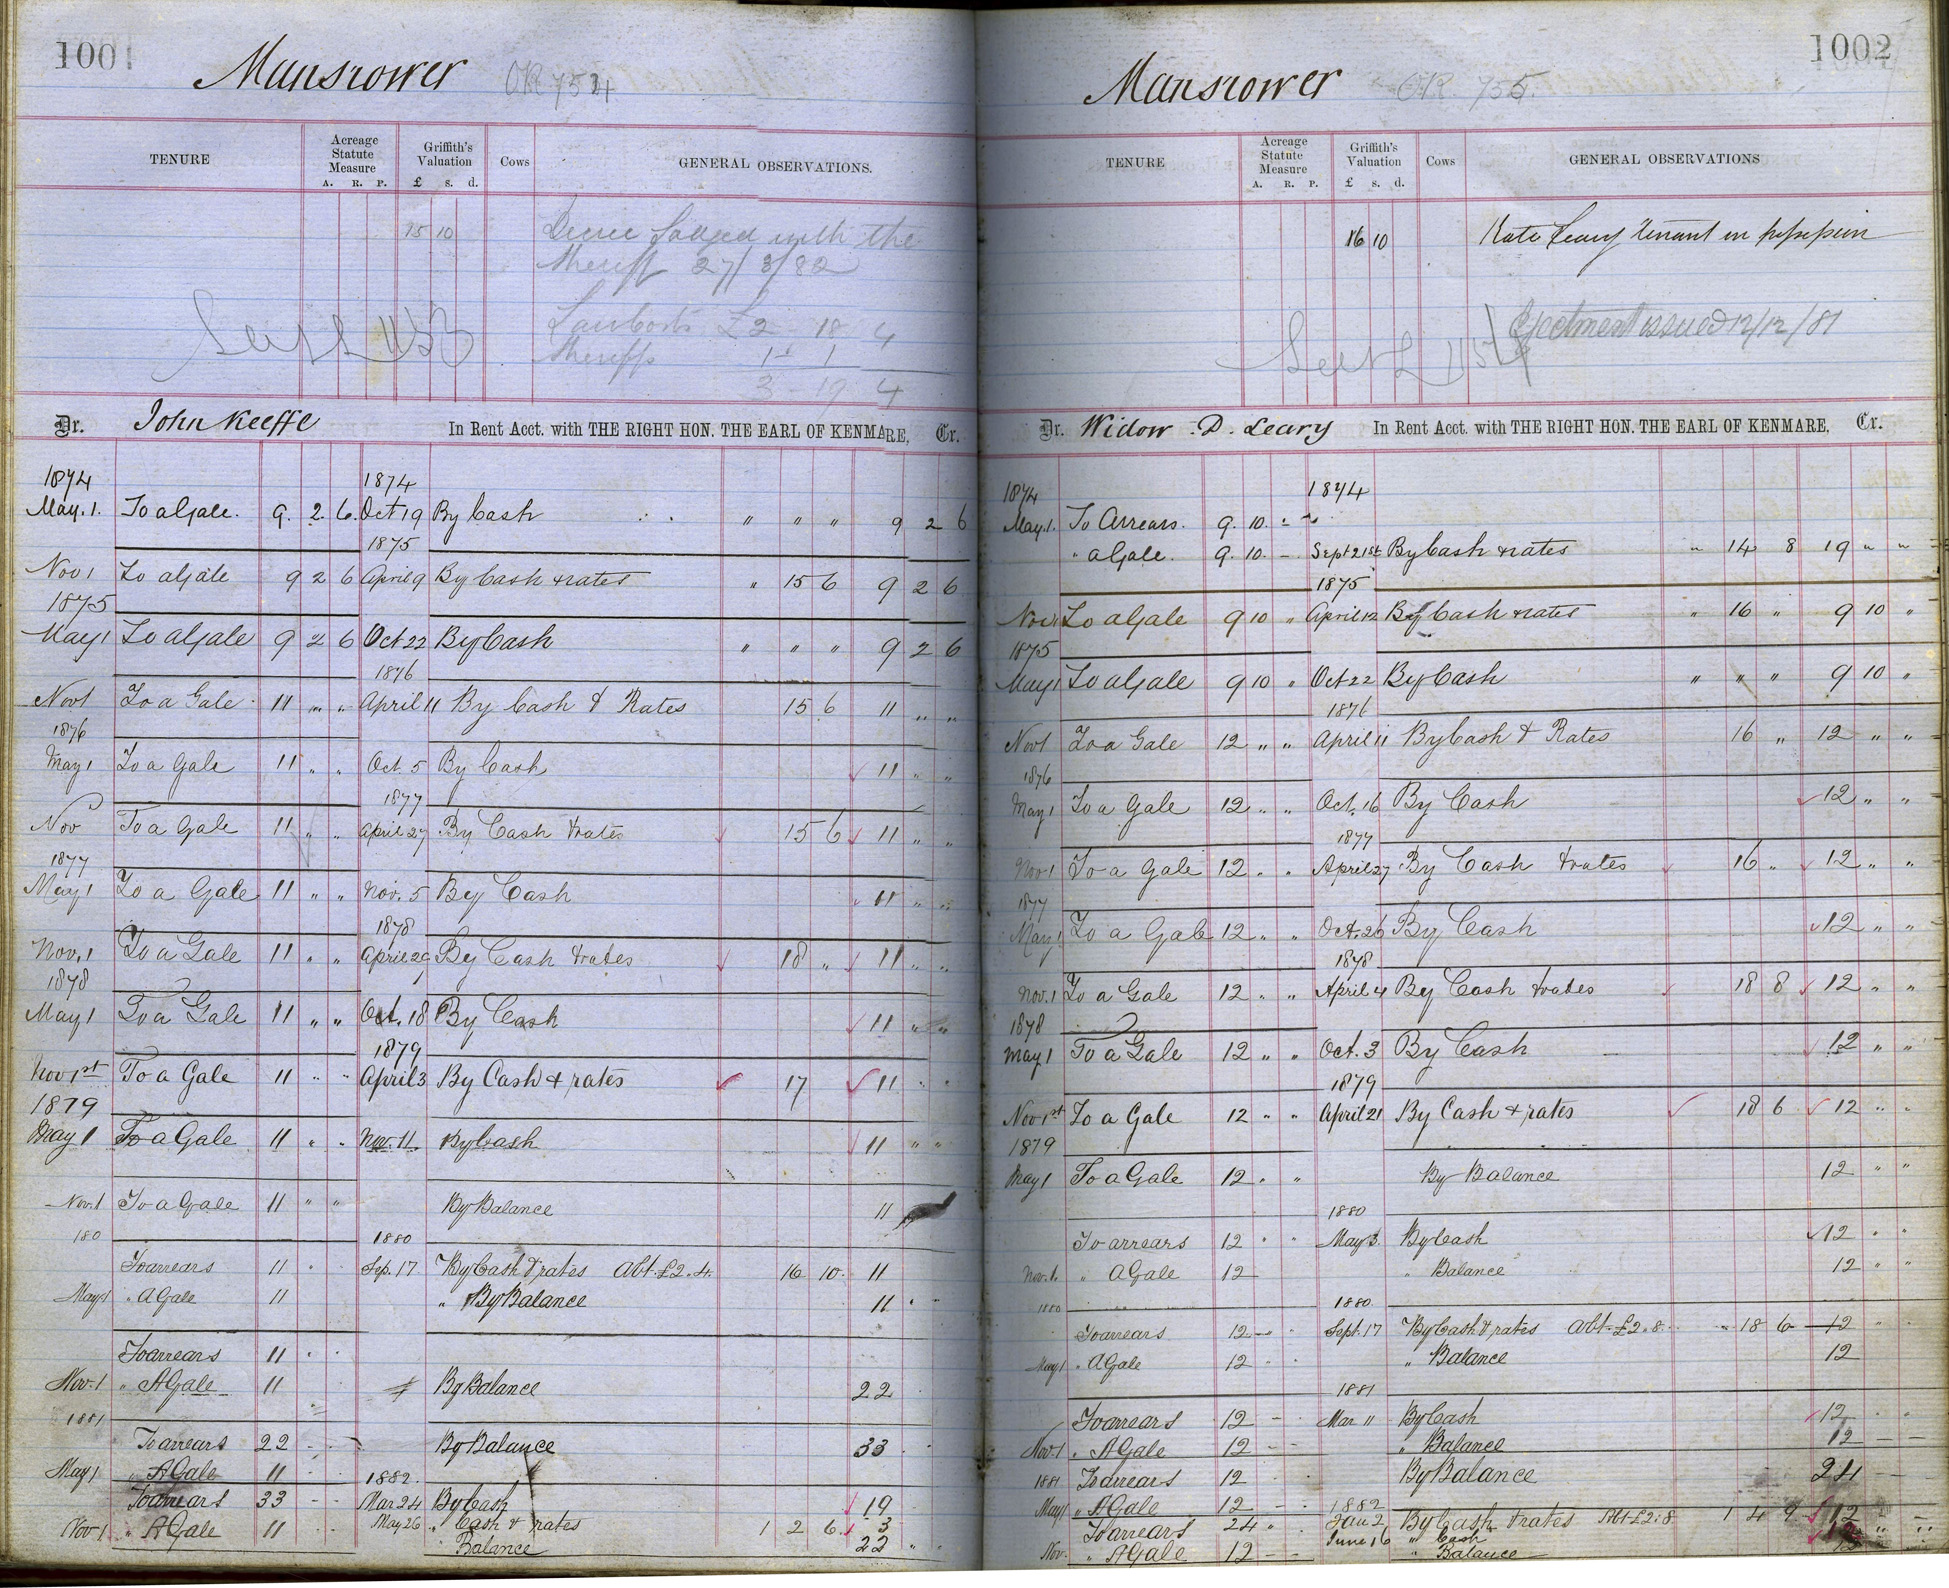 1001
Mansrower OR 754
TENURE
Acreage Statute Measure
A. R. P.
Griffith's Valuation
£ s. d.
Cows
GENERAL OBSERVATIONS.
15 10 Decree Lodged with the
Sheriff 27/3/82
£2 - 18 4
Sheriffs 1 1
3 - 19 4
Dr. John Keeffe In Rent Acct. with THE RIGHT HON. THE EARL OF KENMARE, Cr.
1874 1874
May. 1. To a Gale. 9. 2. 6. Oct 19 By Cash " " " 9 2 6
1875
Nov 1 To a Gale 9 2 6 April 9 By Cash & rates " 15 6 9 2 6
1875
May 1 To a Gale 9 2 6 Oct 22 By Cash " " " 9 2 6
1876
Nov 1 To a Gale 11 " " April 11 By Cash & Rates 15 6 11 " "
1876
May 1 To a Gale 11 " " Oct. 5 By Cash 11 " "
1877
Nov To a Gale 11 " " April 27 By Cash & rates 15 6 11 " "
1877
May 1 To a Gale 11 " " Nov. 5 By Cash 11 " "
1878
Nov. 1 To a Gale 11 " " April 29 By Cash & rates 18 " 11 " "
1878
May 1 To a Gale 11 " " Oct. 18 By Cash 11 " "
1879
Nov 1st To a Gale 11 " " April 3 By Cash & rates 17 11 " "
1879
May 1 To a Gale 11 " " Nov. 11 By Cash 11 " "
Nov. 1 To a Gale 11 " " By Balance 11
180 1880
To arrears 11 " Sep. 17 By Cash & rates Abt. £2.4. 16 10. 11
May 1 " A Gale 11 " By Balance 11 " "
To arrears 11 " "
Nov. 1 " A Gale 11 By Balance 22
1881
To arrears 22 By Balance 33
May 1 " A Gale 11
1882.
To arrears 33 Mar 24 By Cash 19
May 26 " Cash & rates 1 2 6 3
Nov. 1 " A Gale 11 " Balance 22 " "
1002
Mansrower OR 755.
TENURE
Acreage Statute Measure
A. R. P.
Griffith's Valuation
£ s. d.
Cows
GENERAL OBSERVATIONS
16 10 Kate Leary tenant in possession
Ejectment issued 12/12/81
Dr. Widow D. Leary In Rent Acct. with THE RIGHT HON. THE EARL OF KENMARE, Cr.
1874 1874
May 1. To Arrears. 9. 10. " "
" a Gale. 9. 10. - Sept 21st By Cash & rates " 14 8 19 " "
1875
Nov 1 To a Gale 9 10 " April 12 By Cash & rates " 16 " 9 10 "
1875
May 1 To a Gale 9 10 " Oct 22 By Cash " " " 9 10 "
1876
Nov 1 To a Gale 12 " " April 11 By Cash & Rates 16 " 12 " "
1876
May 1 To a Gale 12 " " Oct. 16 By Cash 12 " "
1877
Nov 1 To a Gale 12 " " April 27 By Cash & rates 16 " 12 " "
1877
May 1 To a Gale 12 " " Oct. 26 By Cash 12 " "
1878
Nov. 1 To a Gale 12 " " April 4 By Cash & rates 18 8 12 " "
1878
May 1 To a Gale 12 " " Oct. 3 By Cash 12 " "
1879
Nov 1st To a Gale 12 " " April 21 By Cash & rates 18 6 12 " "
1879
May 1 To a Gale 12 " " By Balance 12 " "
1880
To arrears 12 " " May 3. By Cash 12 " "
Nov. 1. " A Gale 12 " Balance 12 " "
1880 1880.
To arrears 12 " " Sept. 17 By Cash & rates Abt. £2.8. " 18 6 12 " "
May 1 " A Gale 12 " " " Balance 12
1881
To arrears 12 - " Mar 11 By Cash 12 " "
Nov. 1 " A Gale 12 - - " Balance 12 - -
1881 To arrears 12 By Balance 24 -
May 1 " A Gale 12 - "
1882
To arrears 24 " Jan 2 By Cash & rates Abt £2:8 1 4 9 12 " -
June 16 " Cash
Nov. " A Gale 12 - - " Balance